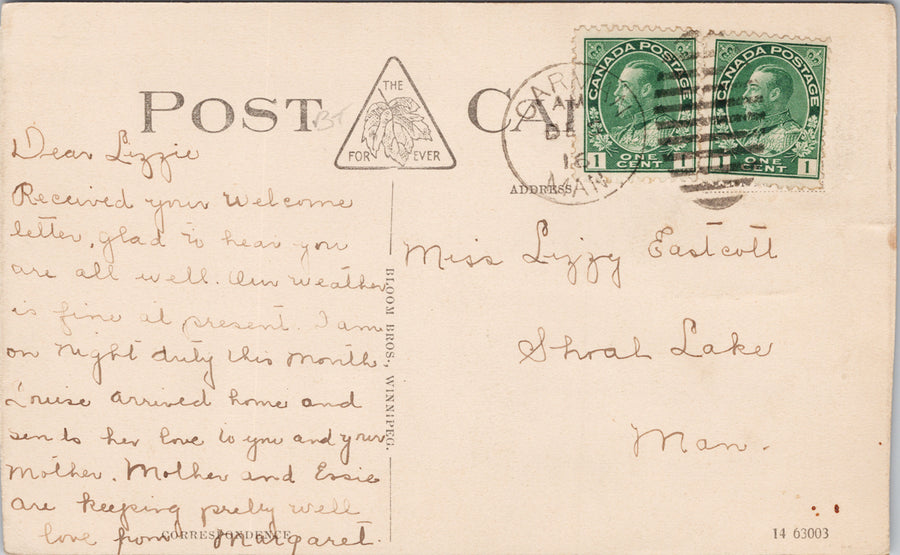 POST CA
THE
FOR EVER
BT
CAR
AM
DE
16
MAN
CANADA POSTAGE
1 ONE CENT 1
CANADA POSTAGE
1 ONE CENT 1
ADDRESS
Dear Lizzie
Received your welcome
letter, glad to hear you
are all well. Our weather
is fine at present. I am
on night duty this month
Louise arrived home and
sends her love to you and your
Mother. Mother and Essie
are keeping pretty well
love from Margaret.
CORRESPONDENCE
BLOOM BROS., WINNIPEG.
Miss Lizzy Eastcott
Shoal Lake
Man.
14 63003